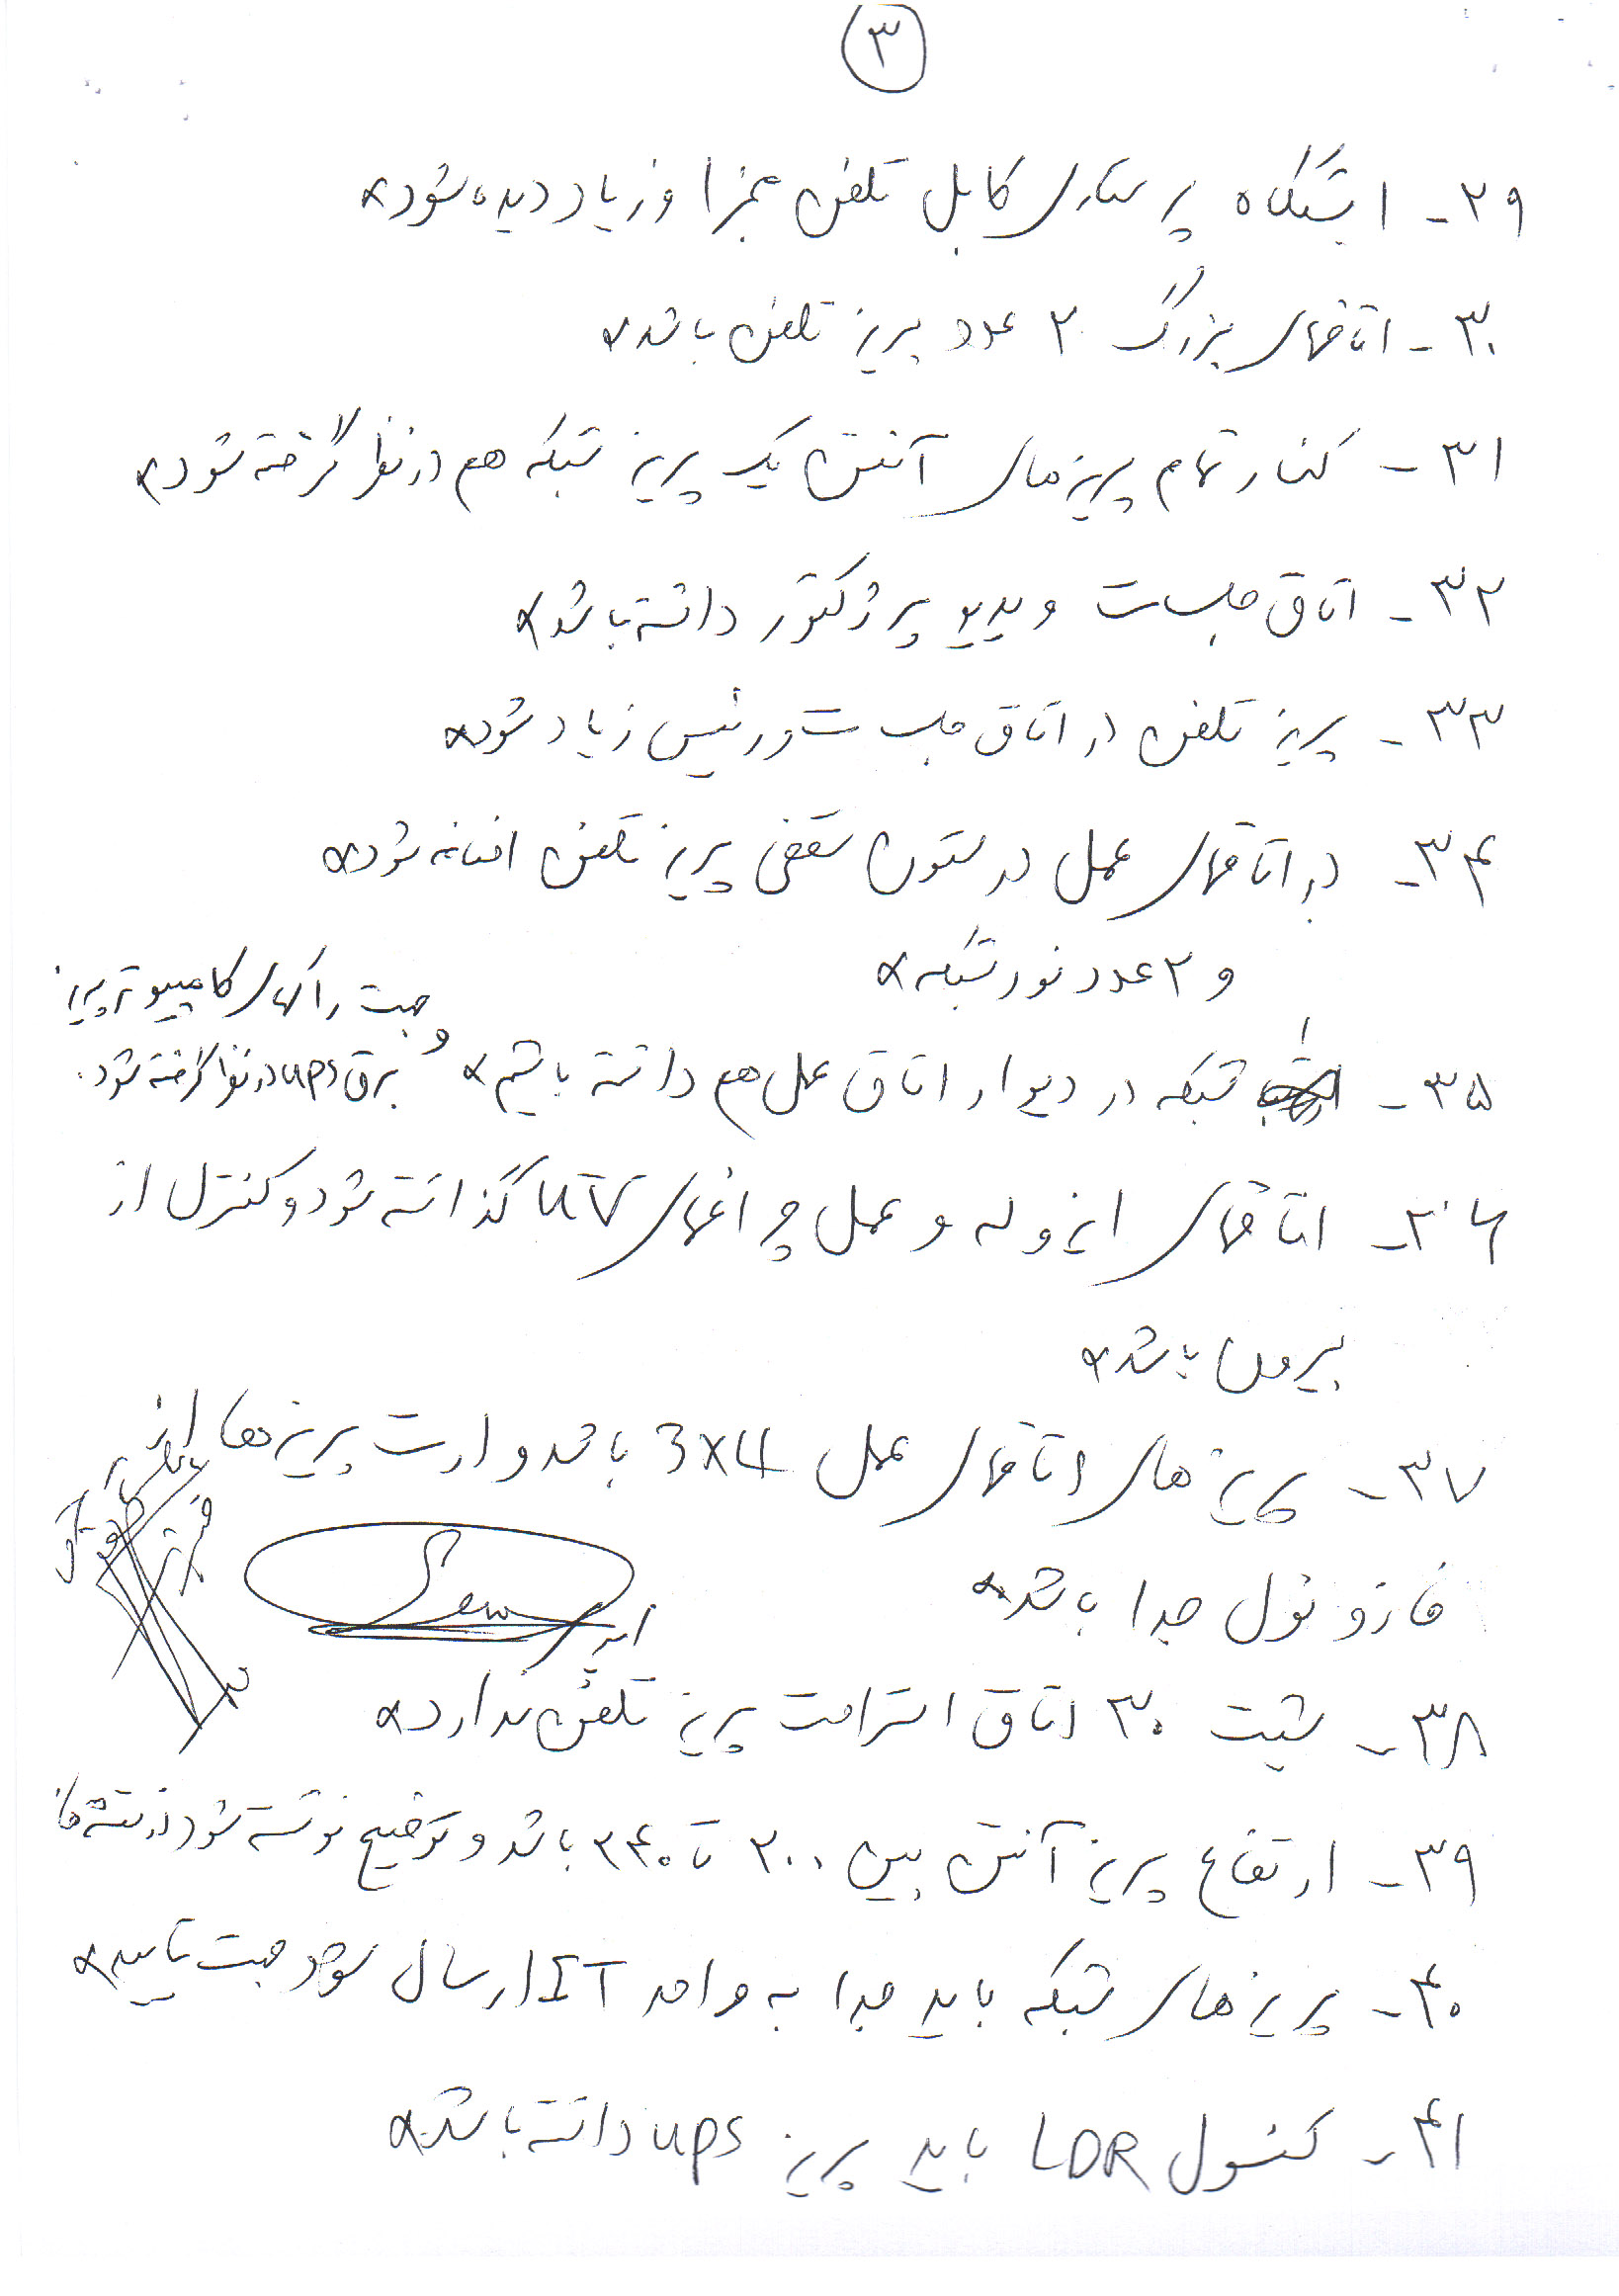 ۳
۲۹- ایستگاه پرستاری کابل تلفن مجزا و زیاد دیده شود
۳۰- اتاقهای بزرگ ۲ عدد پریز تلفن باشد
۳۱- کنار تمام پریزهای آنتن یک پریز شبکه هم در نظر گرفته شود
۳۲- اتاق جلسات ویدیو پرژکتور داشته باشد
۳۳- پریز تلفن در اتاق جلسات و رئیس زیاد شود
۳۴- در اتاقهای عمل در ستون سقفی پریز تلفن اضافه شود
و ۲ عدد نود شبکه
۳۵- شبکه در دیوار اتاق عمل هم داشته باشیم
و جهت راکهای کامپیوتر پریز
برق ups در نظر گرفته شود.
۳۶- اتاقهای ایزوله و عمل چراغهای UV گذاشته شود و کنترل از
بیرون باشد
۳۷- پریزهای اتاقهای عمل 3x4 باشد و ارت پریزها از
فاز و نول جدا باشد
۳۸- شیت ۳۰ اتاق استراحت پریز تلفن ندارد
۳۹- ارتفاع پریز آنتن بین ۲۰۰ تا ۲۴۰ باشد و توضیح نوشته شود در نقشه ها
۴۰- پریزهای شبکه باید جدا به واحد IT ارسال شود جهت تایید
۴۱- کنسول LDR باید پریز ups داشته باشد